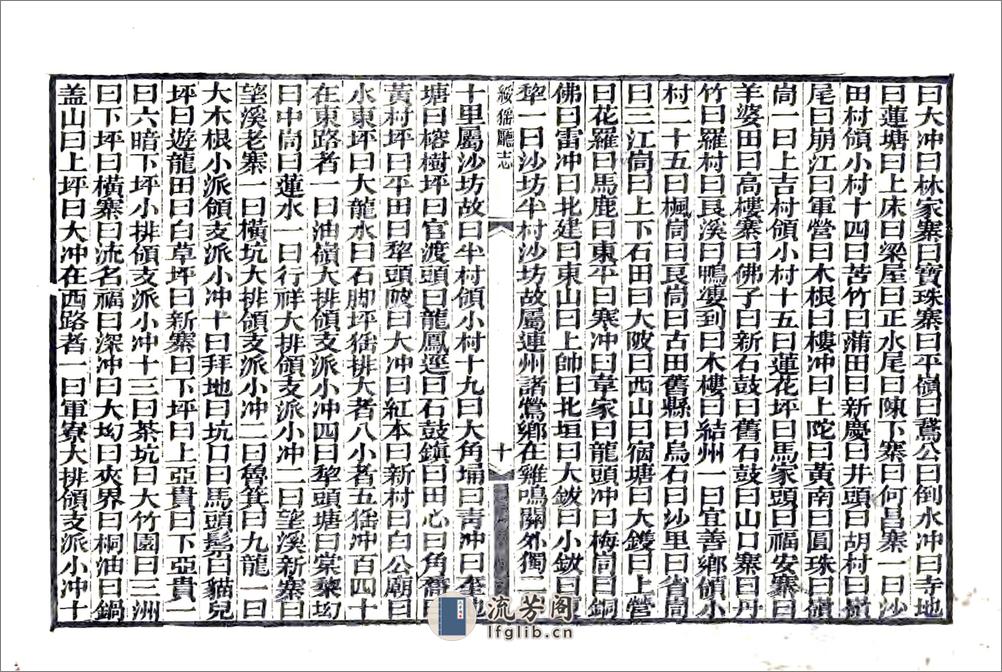 曰大冲曰林家寨曰寶珠寨曰平嶺曰鵞公曰倒水冲曰寺地
曰蓮塘曰上床曰梁屋曰正水尾曰陳下寨曰何昌寨一曰沙
田村領小村十四曰苦竹曰蒲田曰新慶曰井頭曰胡村曰嶺
尾曰崩江曰軍營曰木根曰樓冲曰上陀曰黃南曰圓珠曰嶺
崗一曰上吉村領小村十五曰蓮花坪曰馬家頭曰福安寨曰
羊婆田曰高樓寨曰佛子曰新石鼓曰舊石鼓曰山口寨曰丹
竹曰羅村曰良溪曰鴨婆到曰木樓曰結州一曰宜善鄉領小
村二十五曰楓崗曰良崗曰古田舊縣曰烏石曰沙里曰省崗
曰三江崗曰上下石田曰大陂曰西山曰宿塘曰大鑊曰上營
曰花羅曰馬鹿曰東平曰寒冲曰草家曰龍頭冲曰梅崗曰銅
佛曰雷冲曰北建曰東山曰上帥曰北垣曰大鈸曰小鈸曰
犂一曰沙坊半村沙坊故屬連州諸鶯鄉在雞鳴關外獨二
綏猺廳志 十
十里屬沙坊故曰半村領小村十九曰大角埇曰青冲曰奎地
塘曰榕樹坪曰官渡頭曰龍鳳逕曰石鼓鎮曰田心曰角
黃村坪曰平田曰犂頭陂曰大冲曰紅本曰新村曰白公廟曰
水東坪曰大龍水曰石脚坪猺排大者八小者五猺冲百四十
在東路者一曰油嶺大排領支派小冲四曰犂頭塘曰棠棃㘭
曰中崗曰蓮水一曰行祥大排領支派小冲二曰望溪新寨曰
望溪老寨一曰橫坑大排領支派小冲二曰魯箕曰九龍一曰
大木根小派領支派小冲十曰拜地曰坑口曰馬頭鬃曰貓兒
坪曰遊龍田曰白草坪曰新寨曰下坪曰上亞貴曰下亞貴一
曰六暗下坪小排領支派小冲十三曰茶坑曰大竹園曰三洲
曰下坪曰橫寨曰流名福曰深冲曰大㘭曰夾界曰桐油曰鍋
盖山曰上坪曰大冲在西路者一曰軍寮大排領支派小冲十
流芳閣
lfglib.cn